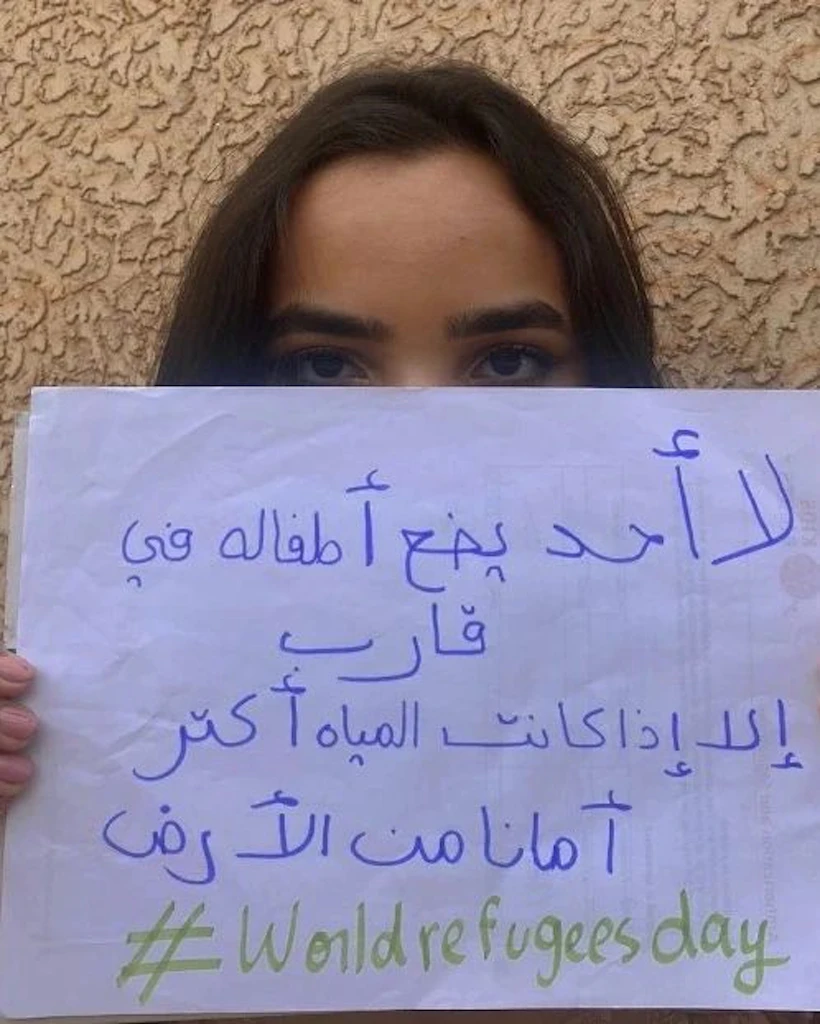 لا أحد يضع أطفاله في
قارب
إلا إذا كانت المياه أكتر
أمانا من الأرض
#Worldrefugeesday